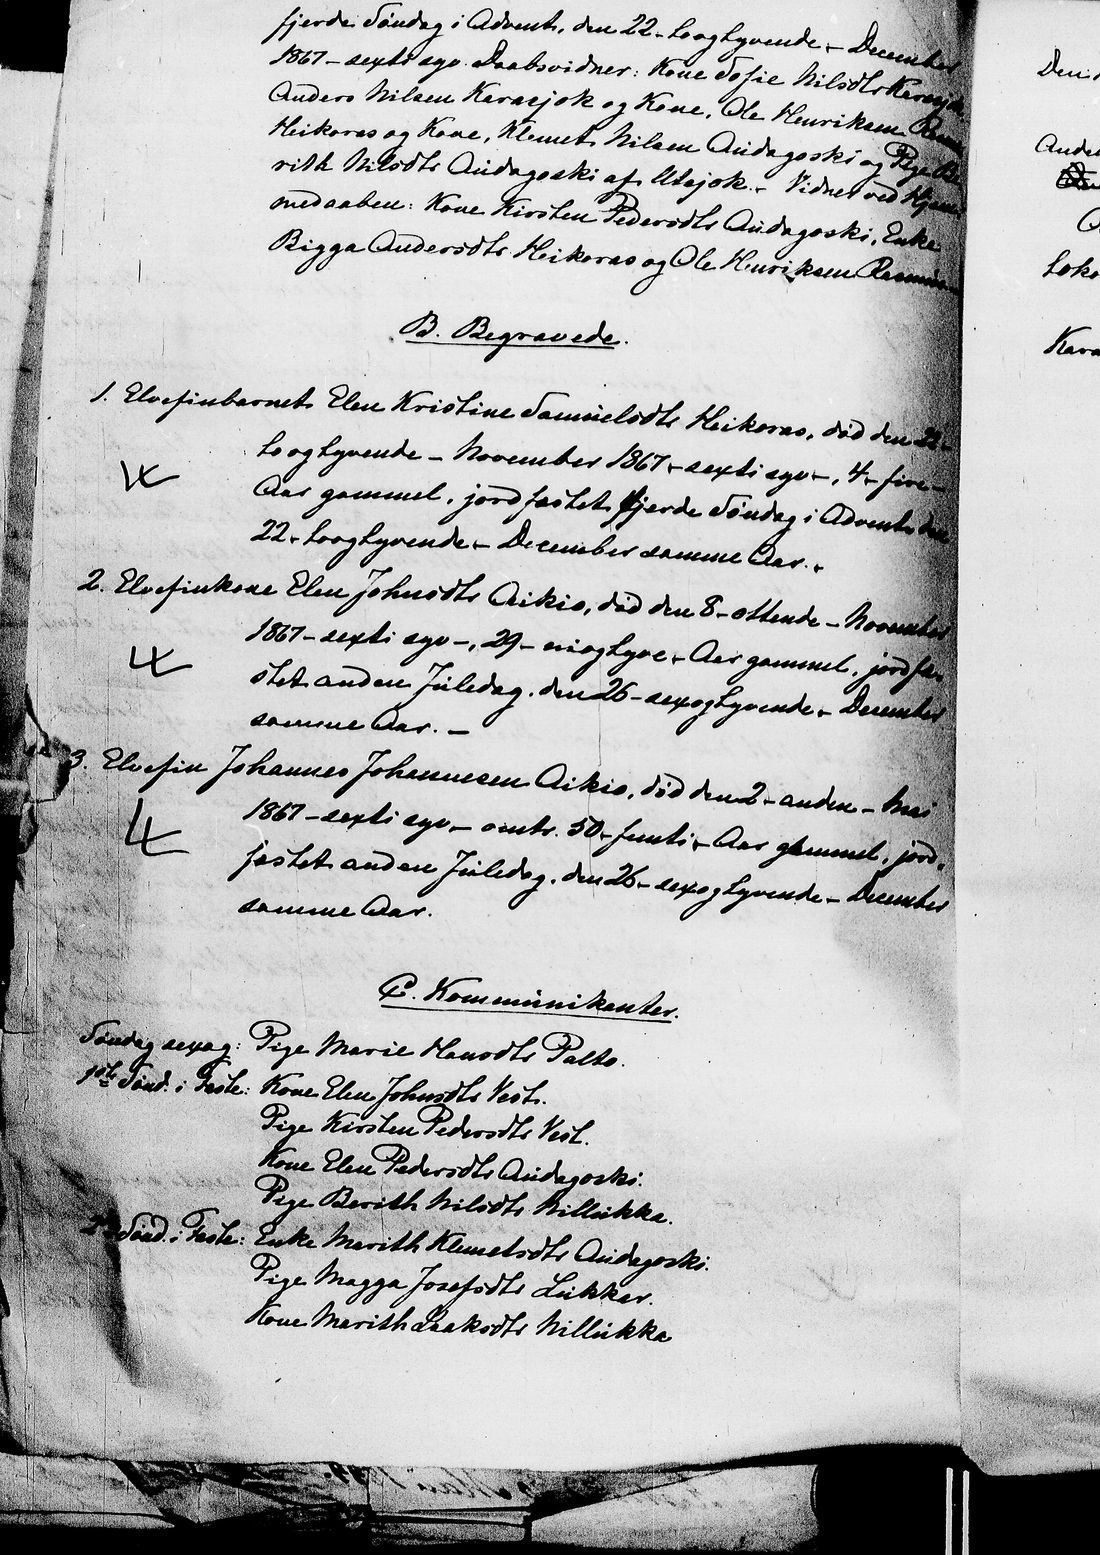 fjerde Søndag i Advent, den 22 - toogtyvende - December
1867 - sexti syv. Daabsvidner: Kone Sofie Nilsdtr Karasjok,
Anders Nilsen Karasjok og Kone, Ole Henriksen
Heikoras og Kone, Klemet Nilsen Audagoski og Pige Be-
rith Nilsdtr Audagoski af Utsjok. - Vidner ved Hjem-
medaaben: Kone Kirsten Pedersdtr Audagoski, Enke
Bigga Andersdtr Heikoras og Ole Henriksen
B. Begravede.
1. Elvefinbarnet Elen Kristine Samuelsdtr Heikoras, død den 22 -
toogtyvende - November 1867 - sexti syv -, 4 - fire -
Aar gammel, jordfæstet fjerde Søndag i Advent den
22 - toogtyvende - December samme Aar. -
2. Elvefinkone Elen Johnsdtr Aikio, død den 8 - ottende - November
1867 - sexti syv -, 29 - niogtyve - Aar gammel, jordfæ-
stet anden Juledag, den 26 - sexogtyvende - December
samme Aar. -
3. Elvefin Johannes Johannesen Aikio, død den 2 - anden - Mai
1867 - sexti syv - omtr. 50 - femti - Aar gammel, jord-
fæstet anden Juledag, den 26 - sexogtyvende - December
samme Aar.
C. Kommunikanter.
Søndag sexag: Pige Marie Hansdtr Palto.
1ste Sønd. i Faste: Kone Elen Johnsdtr Vest.
Pige Kirsten Pedersdtr Vest.
Kone Elen Pedersdtr Audagoski.
Pige Berith Nilsdtr Nillukka.
2 Sønd. i Faste: Enke Marith Klemetsdtr Audagoski.
Pige Magga Josefsdtr Lukkar.
Kone Marith Isaksdtr Nillukka